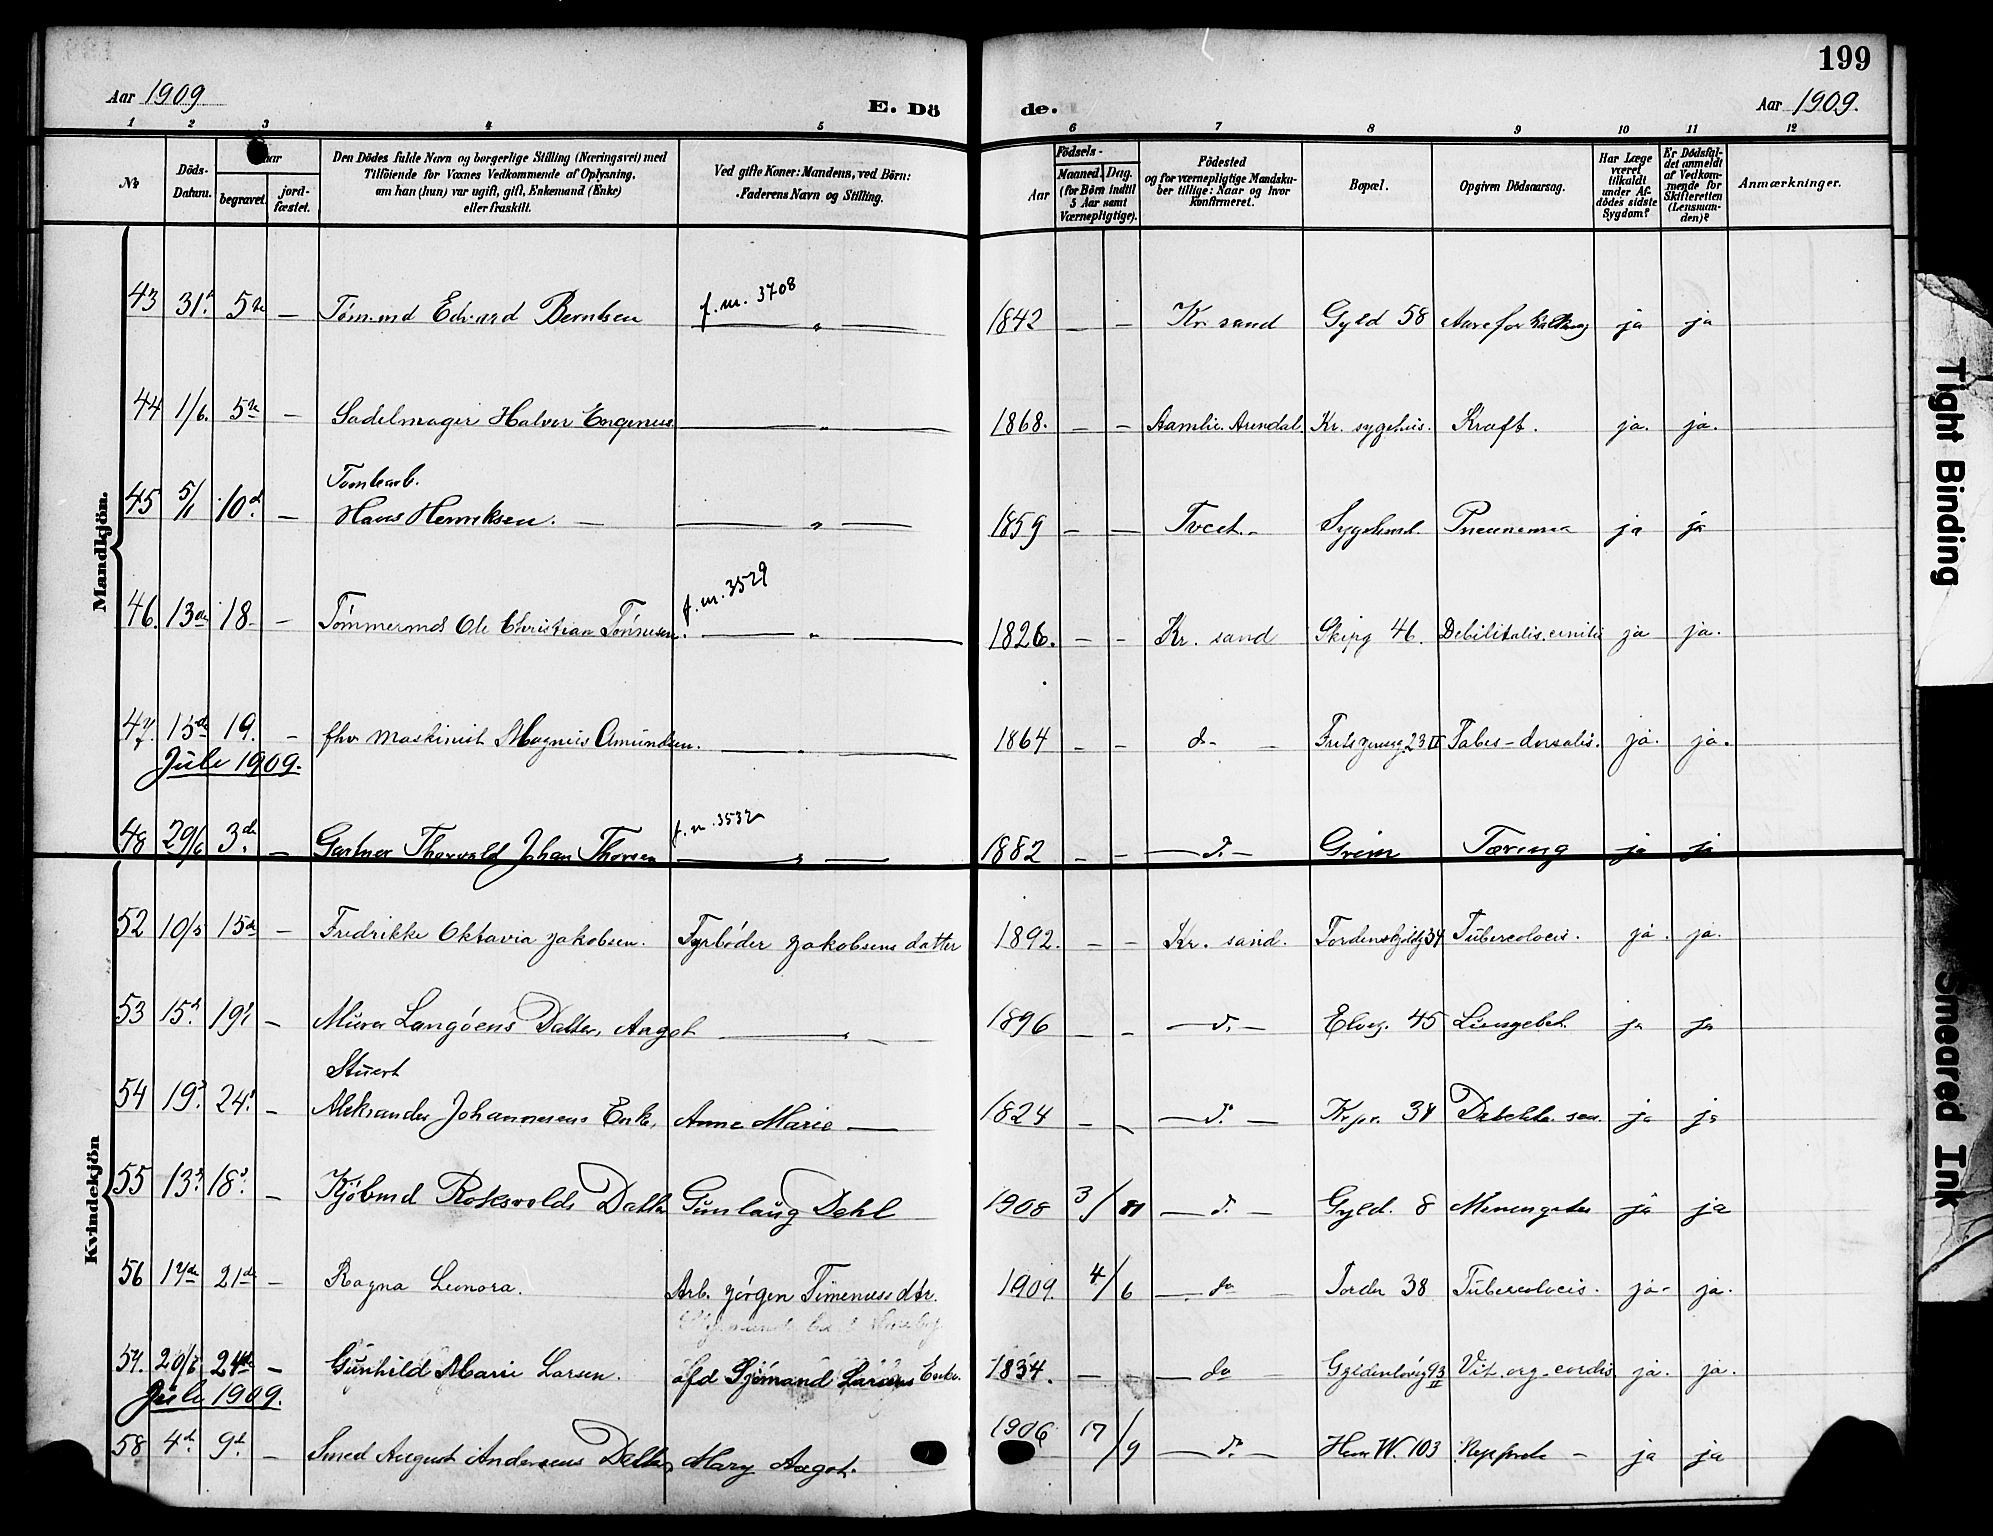 199
Aar 1909.
E. Dö
de.
Aar 1909.
1 2 3 4 5 6 7 8 9 10 11 12
No.
Döds-
Datum.
begravet.
jord-
fæstet.
Den Dödes fulde Navn og borgerlige Stilling (Næringsvei) med
Tilföiende for Voxnes Vedkommende af Oplysning,
om han (hun) var ugift, gift, Enkemand (Enke)
eller fraskilt.
Ved gifte Koner: Mandens, ved Börn:
Faderens Navn og Stilling.
Födsels-
Aar
Maaned. Dag.
(for Börn indtil
5 Aar samt
Værnepligtige).
Födested
og for værnepligtige Mandsku-
ber tillige: Naar og hvor
konfirmeret.
Bopæl.
Opgiven Dödsaarsag.
Har Læge
været
tilkaldt
under Af-
dödes sidste
Sygdom?
Er Dödsfal-
det anmeldt
af Vedkom-
mende for
Skifteretten
(Lensman-
den)?
Anmærkninger.
Mandkjön.
f. m. 3708
43 31t 5te — Tømmd Edvard Berntsen — „ — 1842 — — Kr. sand Gyld 58 Aareforkalkning ja ja
44 1/6. 5te — Sadelmager Halvor Engenius — „ — 1868. — — Aamlie. Arendal. Kr. sygehus. Kræft. ja. ja.
Tomtearb.
45 5/ 10d. — Hans Henriksen. — — „ — 1859 — — Tveit. Sygehus. Pneunemia ja ja
f. m. 3529
46. 13de 18 — Tømmermd Ole Christian Tønnesen. — „ — 1826. — — Kr. sand Skipg 46. Debilitalis. cenilis ja ja.
47. 15de 19. — fhv maskinist Magnus Amundsen. — „ — 1864 — — d — 23 II Tabes-dorsalis. ja. ja.
Juli 1909.
f. m. 3532
48 29/6 3de. — Gartner Thorvald Johan Thorsen — „ — 1882 — — — d. — Grim Tæring ja ja
Kvindekjön
52 10/5 15de — Fredrikke Oktavia Jakobsen. Fyrbøder Jakobsens datter 1892. — — Kr. sand. Tordenskjoldg 34 Tuberculocis. ja. ja.
53 15d. 19d — Murer Langøens Datter, Angot — „ 1896 — — — d. — Elveg. 45 Lungebet. ja ja
Stuert
54 19d. 24d — Aleksander Johannesens Enke, Anne Marie — 1824 — — — do. — Kr.pr. 34 sen. ja ja
55 13d. 18d. — Kjøbmd Roksvolds Datter Gunlaug Dehl 1908 3/ 11 — d. — Gyld. 8 ja ja
56 17de 21de — Ragna Leonora. Arb. Jørgen dtr. 1909. 4/6 — do — Torden 38 Tuberculocis. ja. ja.
57. 20/5 24de — Gunhild Marie Larsen. afd Sjømand Larsens Enke. 1834. — — do — Gyldenløvesg 93 II Vit. org. cordis ja. ja.
Juli 1909.
58 4d. 9d. — Smed August Andersens Datter, Mary Aagot. 1906 17/9 — do. — Hen W. 103 — ja ja
Tight Binding
Smeared Ink